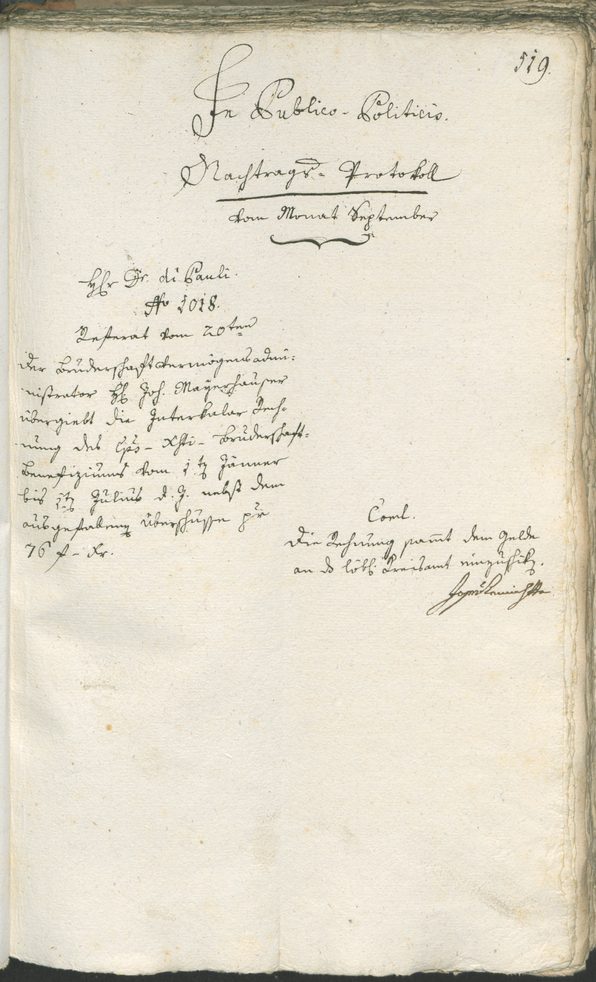 519.
In Publico-Politicis.
Nachtrags-Protokoll
vom Monat September
H. Dr. di Pauli.
No 1018.
Referat vom 20ten
Der Bruderschaftsvermögensadmi-
nistrator H. Joh. Mayrhauser
übergiebt die Interkalar Rech-
nung des Cps-Xsti-Bruderschaft-
Benefiziums vom 1t Jänner
bis 1t Julius d. J. nebst dem
ausgefallenen Überschusse pr
76 f - Kr.
Concl.
Die Rechnung samt dem Gelde
an das löbl. Kreisamt einzuschik.